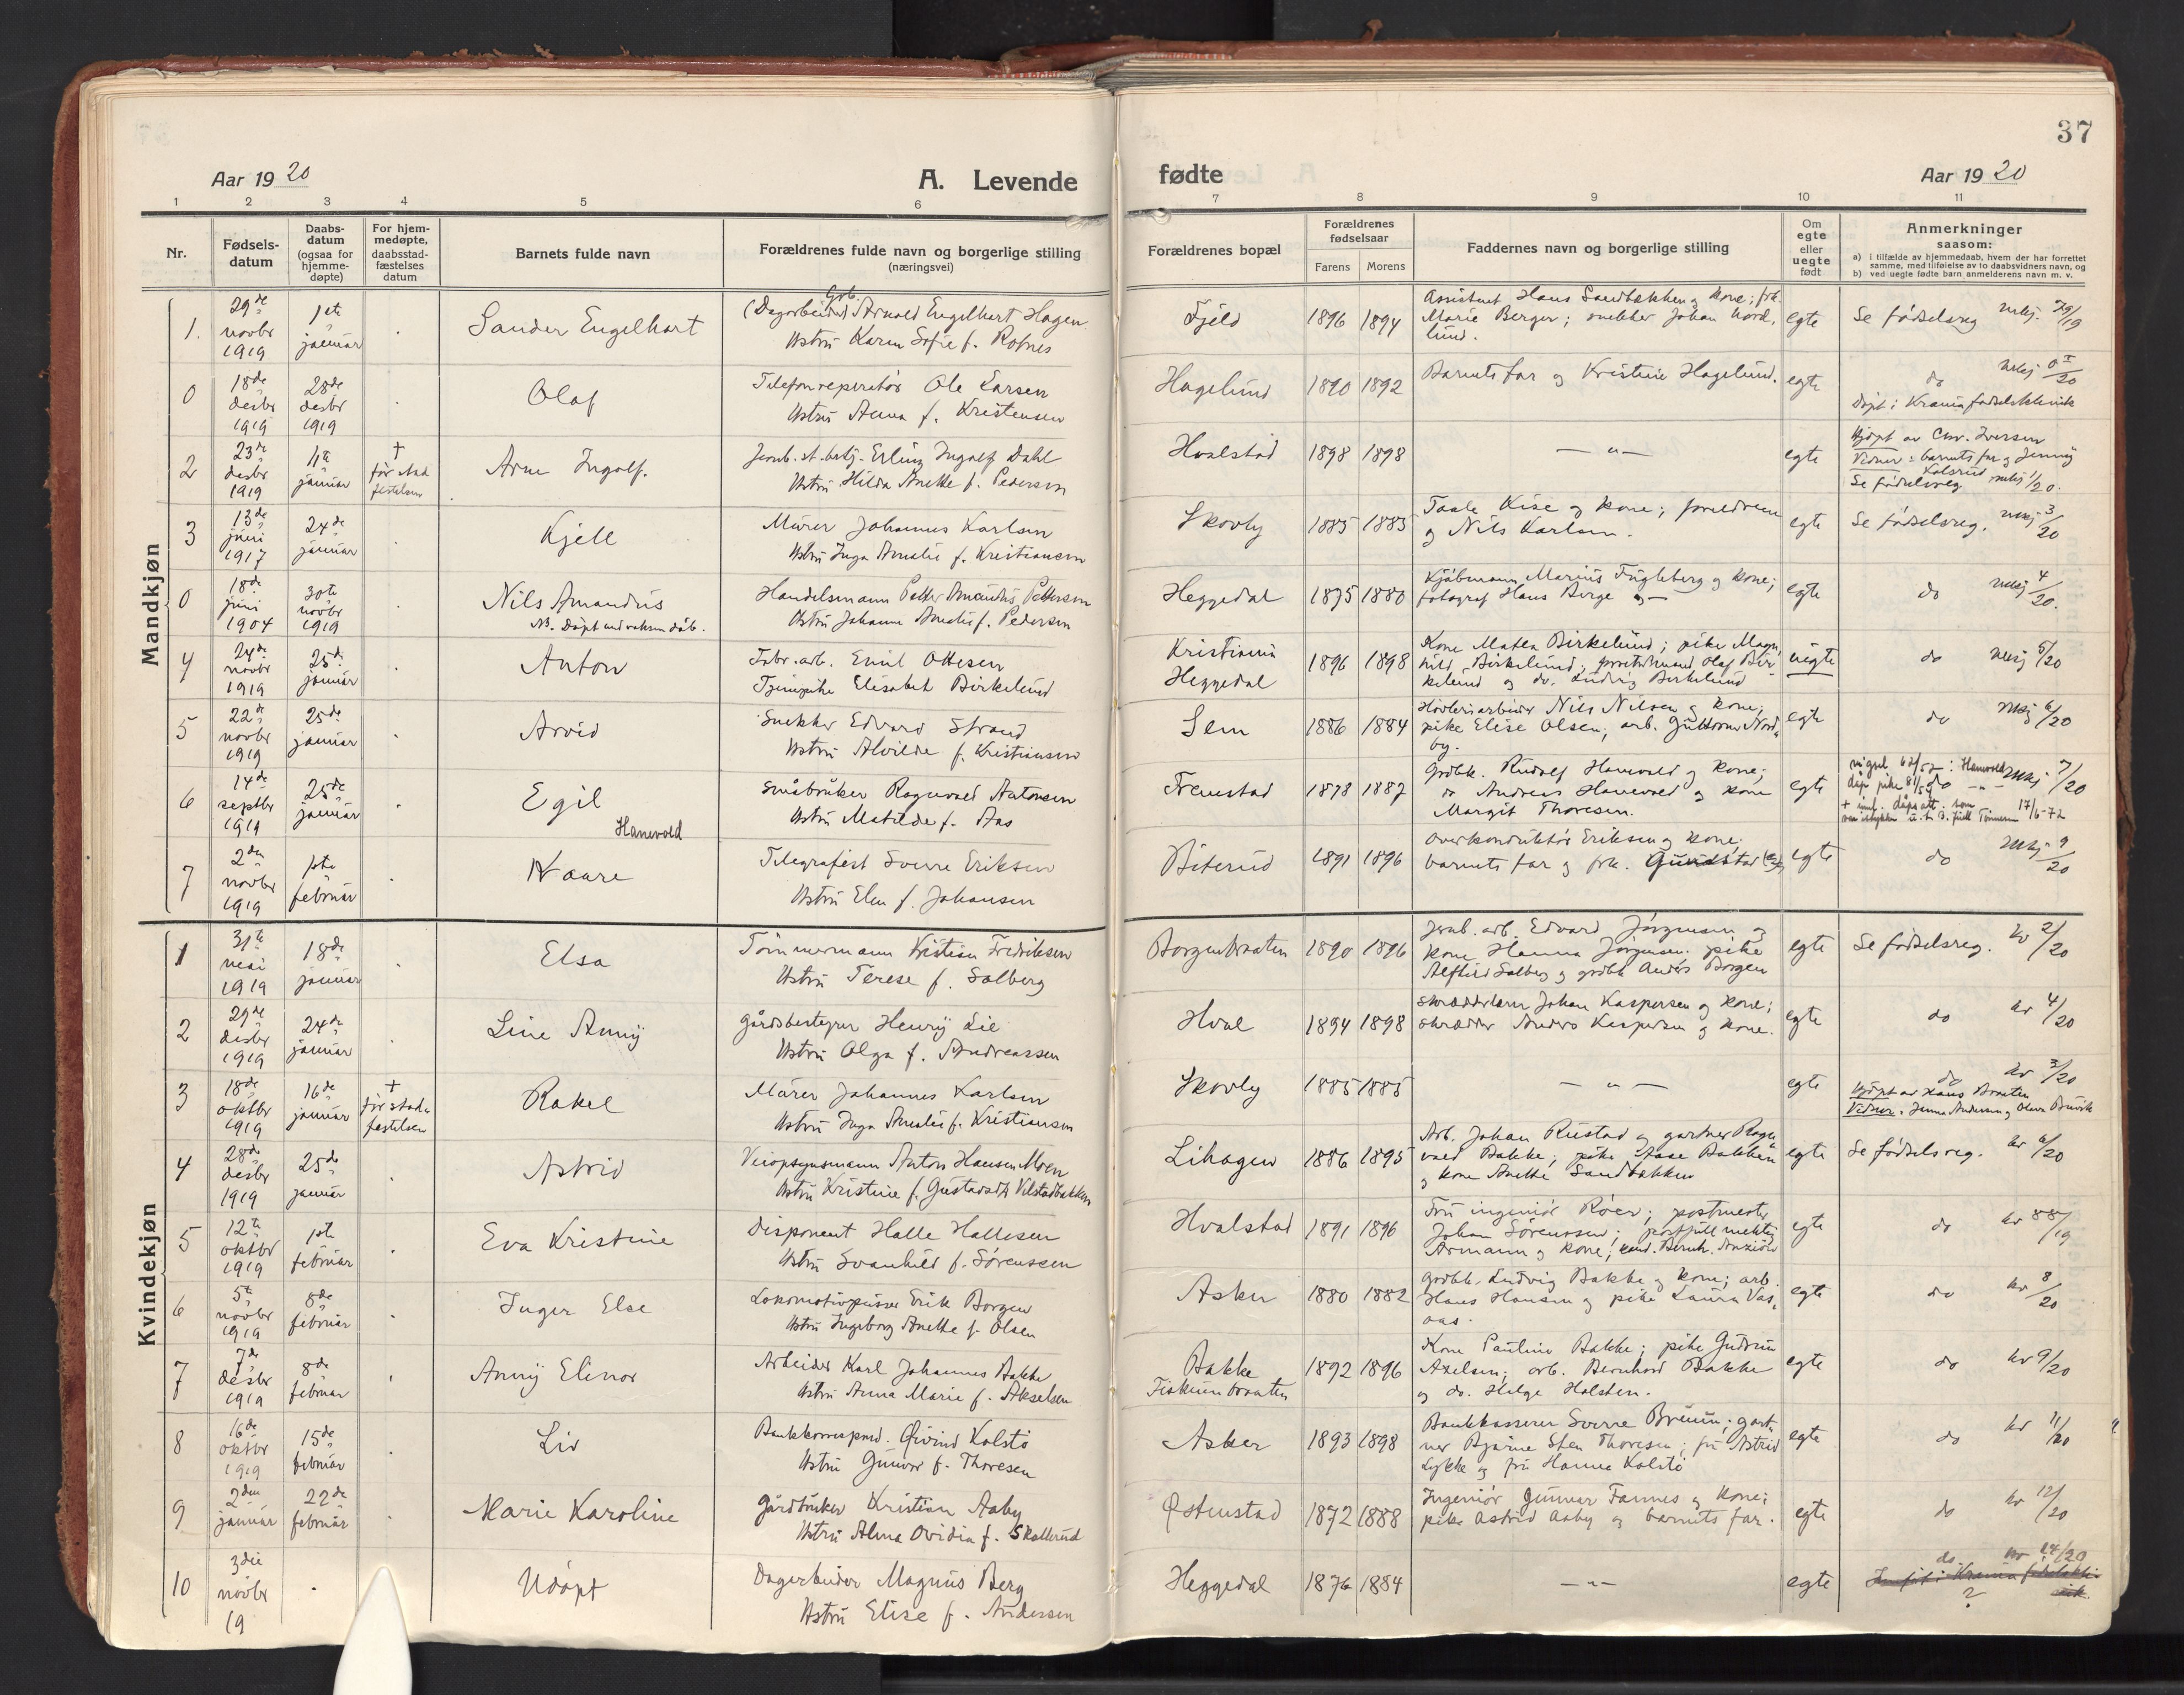 37
Aar 1920
A. Levende
fødte
Aar 1920
1 2 3 4 5 6 7 8 9 10 11
Nr.
Fødsels-
datum
Daabs-
datum
(ogsaa for
hjemme-
døpte)
For hjem-
medøpte,
daabsstad-
fæstelses
datum
Barnets fulde navn
Forældrenes fulde navn og borgerlige stilling
(næringsvei)
Forældrenes bopæl
Forældrenes
fødselsaar
Farens Morens
Faddernes navn og borgerlige stilling
Om
egte
eller
uegte
født
Anmerkninger
saasom:
a) i tilfælde av hjemmedaab, hvem der har forrettet
samme, med tilføielse av to daabsvidners navn, og
b) ved uegte fødte barn anmelderens navn m. v.
Mandkjøn
1. 29de novbr 1919 1ste januar Sander Engelhart
(Dagarbeider) Arnold Engelhart Hagen
Hstru Karen Sofie f. Rotnes
Fjeld 1896 1894
Assistent Hans Sandbakken og kone; frk.
Marie Berger; snekker Johan Nord-
lund.
egte Se fødselsreg mkj. 79/19
0 18de desbr 1919 28de desbr 1919 Olaf
Telefonreparatør Ole Larsen
Hstru Anna f. Kristensen
Hagelund 1890 1892
Barnets far og Kristine Hagelund.
egte do mkj 0/20
Døpt i Krania fødselsklinik
2 23de desbr 1919 11te januar † før stad festelsen Arne Ingolf.
Jernb.st.betj. Erling Ingolf Dahl
Hstru Hilda Anette f. Pedersen
Hvalstad 1898 1898 — „ — egte
Hjdøpt av Chr. Iversen
Vidner: barnets far og Jenny
Kolsrud
Se fødselsreg mkj 1/20.
3 13de juni 1917 24de januar Kjell
Murer Johannes Karlsen
Hstru Inga Amalie f. Kristiansen
Skovly 1885 1885
Taale Kise og kone; foreldrene
og Nils Karlsen.
egte Se fødselsreg. mkj 3/20
0 18de juni 1904 30te novbr 1919 Nils Amandus
NB. Døpt ved voksen dåb.
Handelsmann Petter Amandus Pettersen
Hstru Johanne Amalie f. Pedersen
Heggedal 1875 1880
Kjøbmann Marius Fugleberg og kone;
fotograf Hans Berge og —
egte do mkj 4/20.
4 24de novbr 1919 25de januar Anton
Fabr.arb. Emil Ottesen
Tjenepike Elisabet Birkelund
Kristiania
Heggedal 1896 1898
Kone Matea Birkelund; pike Magn-
hild Birkelund; Olaf Bir-
kelund og do. Ludvig Birkelund
uegte do mkj 5/20
5 22de novbr 1919 25de januar Arvid
Snekker Edvard Strand
Hstru Alvilde f. Kristiansen
Sem 1886 1884
Høvleriarbeider Nils Nilsen og kone;
pike Elise Olsen; arb. Guttorm Nord-
by.
egte do mkj 6/20
6 14de septbr 1919 25de januar Egil
Hanevold
Småbruker Ragnvald Antonsen
Hstru Matilde f. Aas
Fremstad 1878 1887
Grdbk. Rudolf Hanevold og kone;
do Andreas Hanevold og kone
Margit Thoresen.
egte do mkj 7/20
17/6-72
7 2den novbr 1919 1ste februar Kaare
Telegrafist Sverre Eriksen
Hstru Elen f. Johansen
Biterud 1891 1896
Overkonduktør Eriksen og kone;
barnets far og frk. Gundstad
egte do mkj 9/20
Kvindekjøn
1 31te mai 1919 18de januar Elsa
Tömmermann Kristian Fredriksen
Hstru Terese f. Solberg
Borgenbraaten 1890 1896
Jernb.arb. Edvard Jörgensen og
kone Hanna Jörgensen; pike
Alfhild Solberg og grdbk Anders Borgen
egte Se fødselsreg. kv 2/20
2 29de desbr 1919 24de januar Line Anny
Gårdsbestyrer Henry Lie
Hstru Olga f. Andreassen
Hval 1894 1898
Johan Kaspersen og kone;
skrædder Anders Kaspersen og kone.
egte do kv 4/20
3 18de oktbr 1919 16de januar † før stad- festelsen Rakel
Murer Johannes Karlsen
Hstru Inga Amalie f. Kristiansen
Skovly 1885 1885 — „ — egte do kv 3/20
Hjdøpt av Hans Braaten
Vidner: Jenna Andersen og Olava Bruvik
4 28de desbr 1919 25de januar Astrid
Veiopsynsmann Anton Hansen Moen
Hstru Kristine f. Gustadsdtr Vilstadbakken
Lihagen 1886 1895
Arb. Johan Rustad og gartner Ragn-
vald Bakke; pike Aase Bakken
og kone Anette Sandbakken
egte Se fødselsreg. kv 6/20
5 12te oktbr 1919 1ste februar Eva Kristine
Disponent Halle Hallesen
Hstru Svanhild f. Sørenssen
Hvalstad 1891 1896
Fru ingeniør Röer; postmester
Johan Sørenssen; postfullmektig
Armann og kone; cand. Bernh.
egte do kv 88/19
6 5te novbr 1919 8de februar Inger Else
Lokomotivpusser Erik Borgen
Hstru Ingeborg Anette f. Olsen
Asker 1880 1882
Grdbk. Ludvig Bakke og kone; arb.
Hans Hansen og pike Laura Vas-
aas.
egte do kv 8/20
7 7de desbr 1919 8de februar Anny Elinor
Arbeider Karl Johannes Bakke
Hstru Anna Marie f. Akselsen
Bakke
Fiskumbraaten 1892 1896
Kone Pauline Bakke; pike Gudrun
Axelsen; arb. Bernhard Bakke
og do. Helge Holsten.
egte do kv 9/20
8 16de oktbr 1919 15de februar Liv
Bankkorrespond. Øivind Kolstö
Hstru Gunvor f. Thoresen
Asker 1893 1898
Bankkasserer Sverre Bruun; gart-
ner Bjarne Sten Thoresen; fru Astrid
Lykke og fru Hanna Kolstö
egte do kv 11/20
9 2den januar 22de februar Marie Karoline
Gårdbruker Kristian Aaby
Hstru Alma Ovidia f. Skallerud
Østenstad 1872 1888
Ingeniør Gunnar Tannes og kone;
pike Astrid Aaby og barnets far.
egte do kv 12/20
10 3die novbr 19 . Udöpt
Dagarbeider Magnus Berg
Hstru Elise f. Andersen
Heggedal 1876 1884 — „ — egte do kv 14/20
?